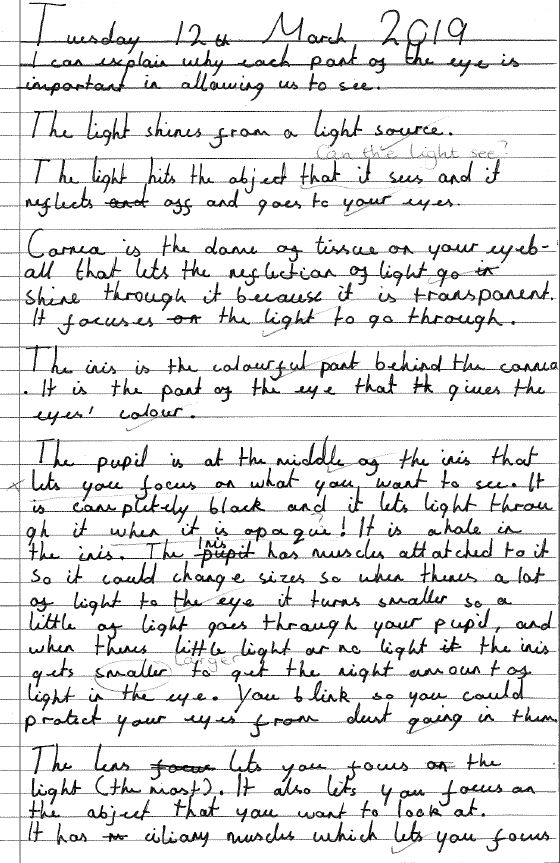 Tuesday 12th March 2019
I can explain why each part of the eye is
important in allowing us to see.
The light shines from a light source.
Can the light see?
The light hits the object that it sees and it
reflects and off and goes to your eyes.
Cornea is the dome of tissue on your eyeb-
all that lets the reflection of light go in
shine through it because it is transparent.
It focuses on the light to go through.
The iris is the colourful part behind the cornea
. It is the part of the eye that th gives the
eyes' colour.
The pupil is at the middle of the iris that
lets you focus on what you want to see. It
is completely black and it lets light throu
gh it when it is opaque! It is a hole in
the iris. The pupil iris has muscles attatched to it
so it could change sizes so when theres a lot
of light to the eye it turns smaller so a
little of light goes through your pupil, and
when theres little light or no light it the iris
gets smaller to get the right amount of
larger
light in the eye. You blink so you could
protect your eyes from dust going in them
The lens focus lets you focus on the
light (the most). It also lets you focus on
the object that you want to look at.
It has m ciliary muscles which lets you focus